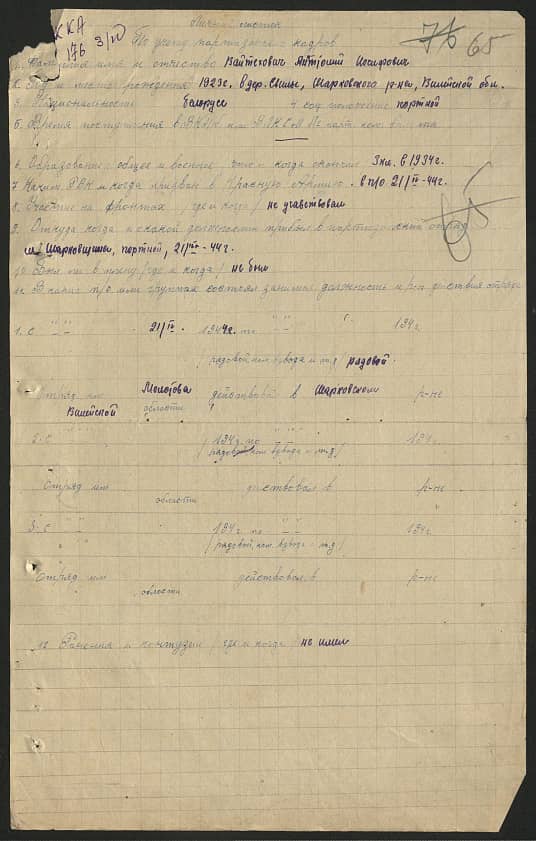 ККА
176 3/IV
Личный листок
76 65
По учету партизанских кадров
1. Фамилия имя и отчество Войтехович Антоний Иосифович
2. Год и место рождения 1923г. в дер. Шарковского р-на, Вилейской обл.
3. Национальность Белорус 4 соц положение портной
5. Время поступления в ВКП/б или ВЛКСМ № парт. ком. билета
—
6. Образование общее и военное когда окончил 3 кл. в 1934г.
7 Каким РВК и когда призван в Красную Армию. в п/о 21/IV-44г.
8. Участие на фронтах /где и когда/ не участвовал
65
9. Откуда когда и с какой должности прибыл в партизанский отряд
м. Шарковщина, портной, 21/IV-44г.
10. Был ли в плену /где и когда/ не был
11. В каких п/о или группах состоял занимал должность и р-н действия отряда
1. с " " 21/IV. 1944г. по " " 194 г.
/рядовой ком взвода и т.д/ рядовой.
Отряд им Молотова действовал в Шарковском р-не
Вилейской области
2. с " " 194 г. по " " 194 г.
/рядовой ком взвода и т.д/
Отряд им действовал в р-не
области
3. с " " 194 г по " " 194 г
/рядовой, ком. взвода и т.д/
Отряд им действовал в р-не
области
12 Ранения и контузии /где и когда/ не имел